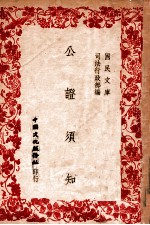 國民文庫
司法行政部編
公證須知
中國文化服務社印行